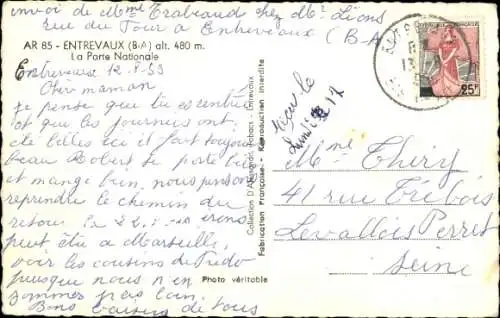 envoi de Mme Trabaud chez Mr Lions
rue du Four à Entrevaux (B-A)
AR 85 - ENTREVAUX (B-A) alt. 480 m.
La Porte Nationale
Entrevaux 12.8.59
Chère maman
je pense que tu es rentrée
et que les journées ont
été belles ici il fait toujours
beau Robert se porte bien
et mange bien, nous pensons
reprendre le chemin du
retour le 22. irons
peut être à Marseille
voir les cousins de
puisque nous n'en
sommes pas loin.
Bons baisers de tous
Collection D'Art Entrevaux
Fabrication Française - Reproduction interdite
Photo véritable
REPUBLIQUE FRANÇAISE
25F
Mme Thery
41 rue
Levallois Perret
Seine